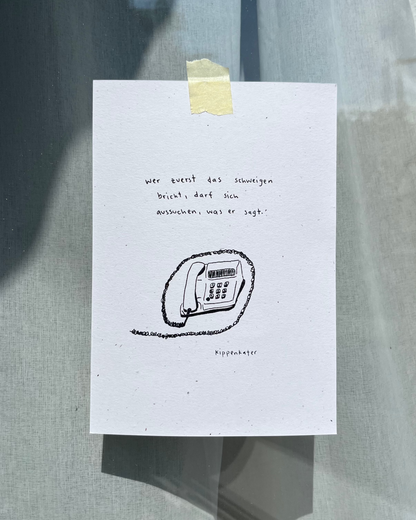 wer zuerst das schweigen
bricht, darf sich
aussuchen, was er sagt.
Kippenkater